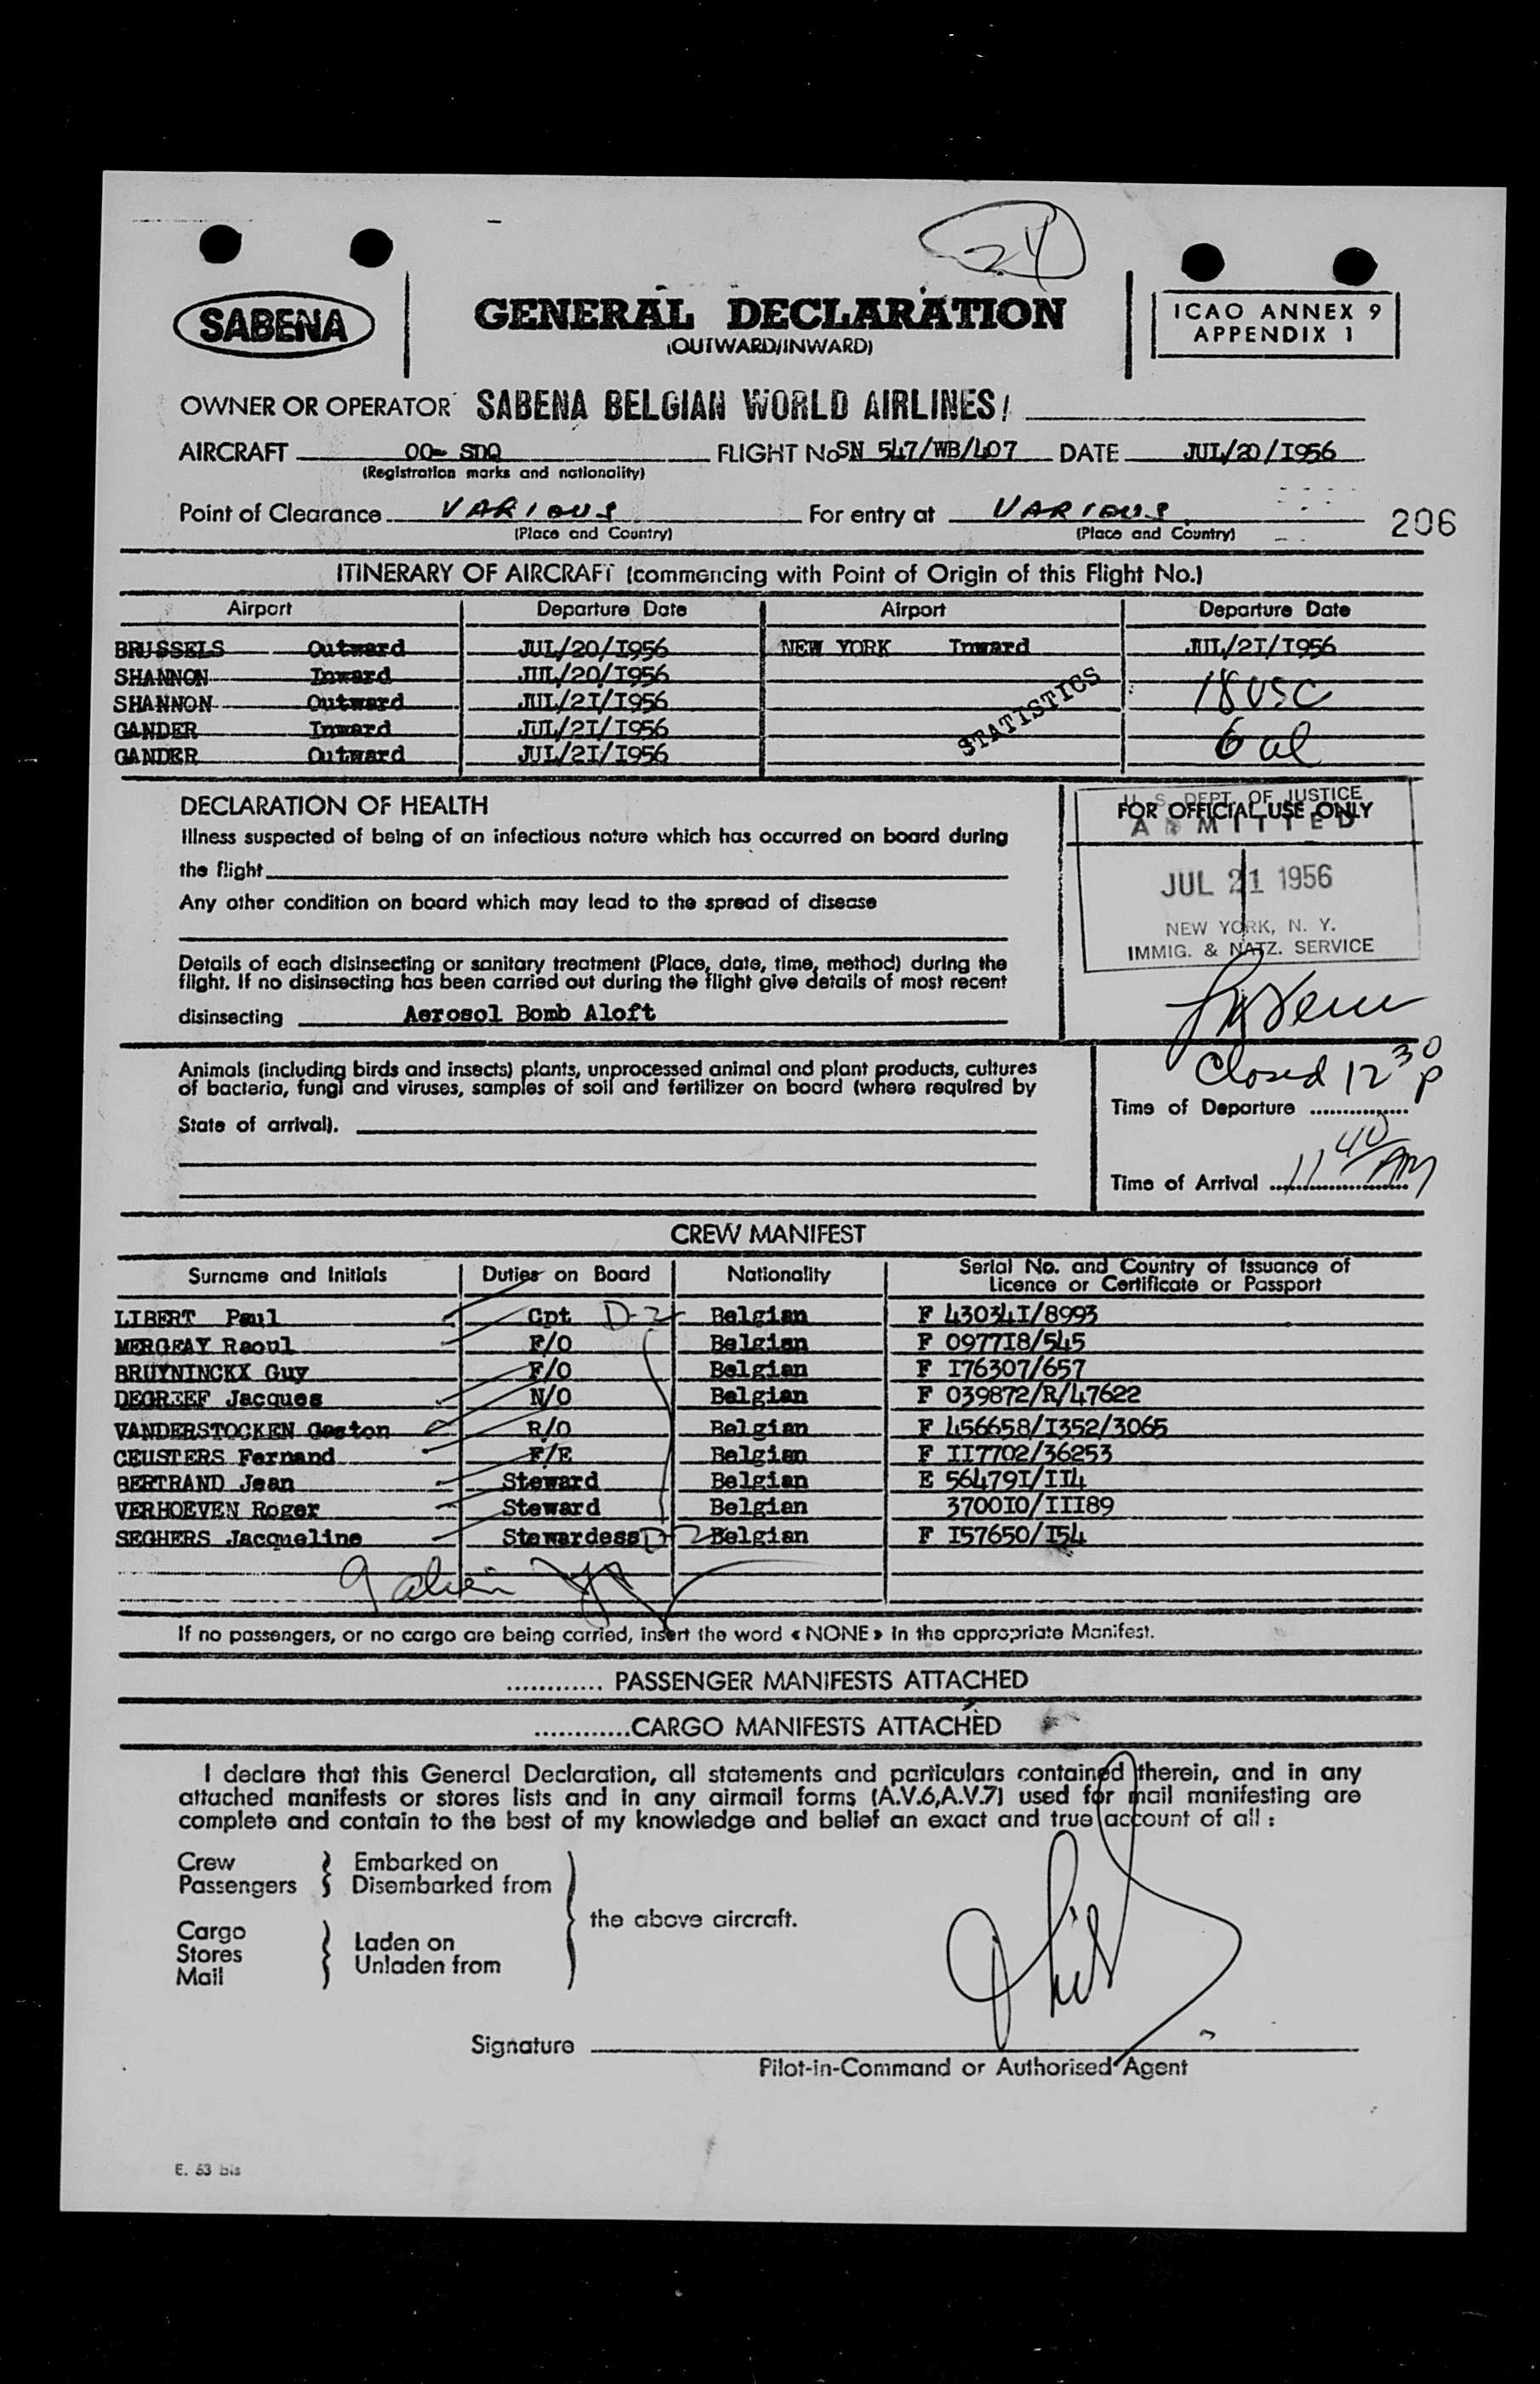 24
SABENA
GENERAL DECLARATION
(OUTWARD/INWARD)
ICAO ANNEX 9
APPENDIX 1
OWNER OR OPERATOR SABENA BELGIAN WORLD AIRLINES!
AIRCRAFT OO- SDQ FLIGHT No SN 547/WB/407 DATE JUL/20/I956
(Registration marks and nationality)
Point of Clearance VARIOUS For entry at VARIOUS
(Place and Country) (Place and Country)
206
ITINERARY OF AIRCRAFT (commencing with Point of Origin of this Flight No.)
Airport Departure Date Airport Departure Date
BRUSSELS Outward JUL/20/I956 NEW YORK Inward JUL/2I/I956
SHANNON Inward JUL/20/I956
SHANNON Outward JUL/2I/I956 STATISTICS 18 USC
GANDER Inward JUL/2I/I956
GANDER Outward JUL/2I/I956 6 al
DECLARATION OF HEALTH
Illness suspected of being of an infectious nature which has occurred on board during
the flight
Any other condition on board which may lead to the spread of disease
Details of each disinsecting or sanitary treatment (Place, date, time, method) during the
flight. If no disinsecting has been carried out during the flight give details of most recent
disinsecting Aerosol Bomb Aloft
FOR OFFICIAL USE ONLY
U. S. DEPT. OF JUSTICE
ADMITTED
JUL 21 1956
NEW YORK, N. Y.
IMMIG. & NATZ. SERVICE
Animals (including birds and insects) plants, unprocessed animal and plant products, cultures
of bacteria, fungi and viruses, samples of soil and fertilizer on board (where required by
State of arrival).
Closed 12 30 P
Time of Departure
Time of Arrival 11 40 AM
CREW MANIFEST
Surname and Initials Duties on Board Nationality Serial No. and Country of Issuance of
Licence or Certificate or Passport
LIBERT Paul Cpt D-2 Belgian F 43034I/8993
MERGEAY Raoul F/O Belgian F 0977I8/545
BRUYNINCKX Guy F/O Belgian F I76307/657
DEGREEF Jacques N/O Belgian F 039872/R/47622
VANDERSTOCKEN Gaston R/O Belgian F 456658/I352/3065
CEUSTERS Fernand F/E Belgian F II7702/36253
BERTRAND Jean Steward Belgian E 56479I/II4
VERHOEVEN Roger Steward Belgian 3700I0/III89
SEGHERS Jacqueline Stewardess D-2 Belgian F I57650/I54
If no passengers, or no cargo are being carried, insert the word « NONE » in the appropriate Manifest.
............ PASSENGER MANIFESTS ATTACHED
............CARGO MANIFESTS ATTACHED
I declare that this General Declaration, all statements and particulars contained therein, and in any
attached manifests or stores lists and in any airmail forms (A.V.6,A.V.7) used for mail manifesting are
complete and contain to the best of my knowledge and belief an exact and true account of all :
Crew Embarked on
Passengers Disembarked from
the above aircraft.
Cargo
Stores Laden on
Mail Unladen from
Signature
Pilot-in-Command or Authorised Agent
E. 53 bis